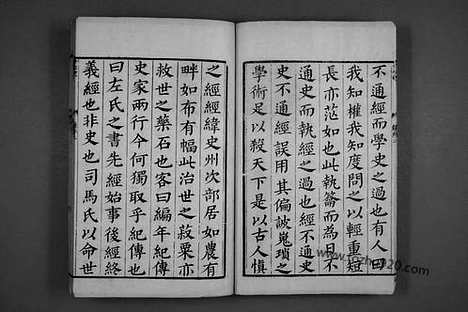 不通經而學史之過也有人曰
我知權我知度問之以輕重短
長亦茫如也此執籥而為日不
通史而執經之過也經不通史
史不通經誤用其偏詖嵬瑣之
學術足以殺天下是以古人愼
之經經緯史州次部居如農有
畔如布有幅此治世之菽粟亦
救世之藥石也客曰編年紀傳
史家兩行今何獨取乎紀傳也
曰左氏之書先經始事後經終
義經也非史也司馬氏以命世